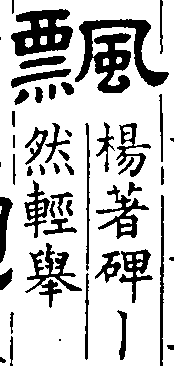 飄
楊著碑丨
然輕舉